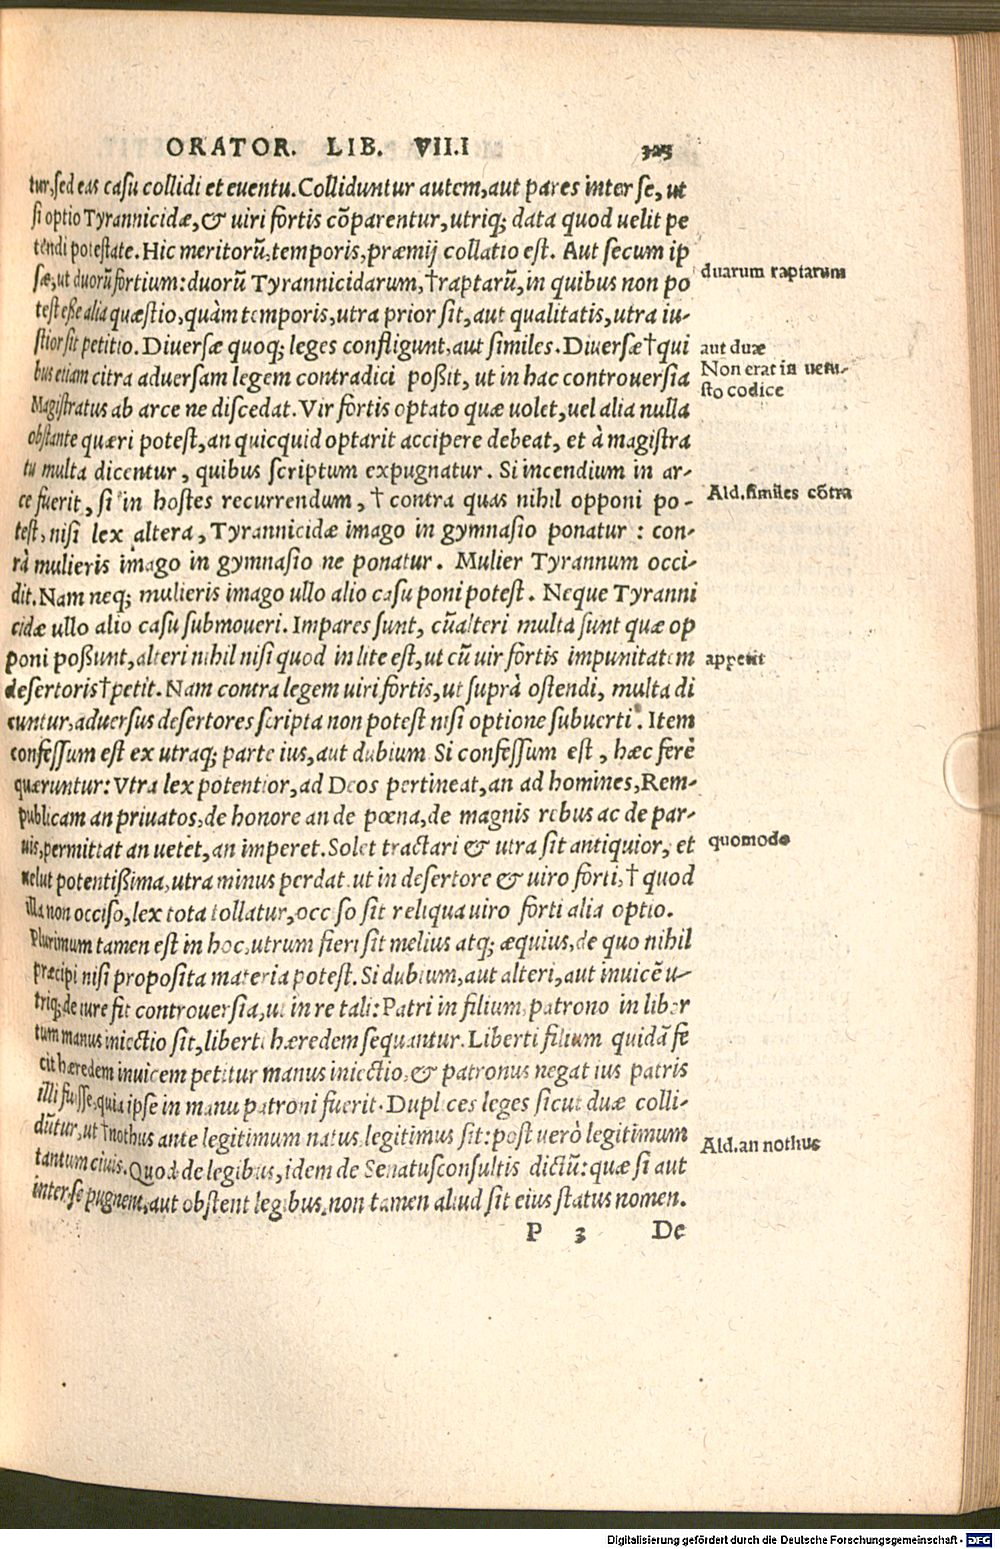 ORATOR. LIB. VII.I 325
tur, sed eas casu collidi et euentu. Colliduntur autem, aut pares inter se, ut
si optio Tyrannicidæ, & uiri fortis cõparentur, utriq; data quod uelit pe
tendi potestate. Hic meritorũ, temporis, præmij collatio est. Aut secum ip
sæ, ut duorũ fortium: duorũ Tyrannicidarum, †raptarũ, in quibus non po
duarum raptarum
test esse alia quæstio, quàm temporis, utra prior sit, aut qualitatis, utra iu-
stior sit petitio. Diuersæ quoq; leges confligunt, aut similes. Diuersæ†qui
aut duæ
bus etiam citra aduersam legem contradici poßit, ut in hac controuersia
Non erat in uetu-
sto codice
Magistratus ab arce ne discedat. Vir fortis optato quæ uolet, uel alia nulla
obstante quæri potest, an quicquid optarit accipere debeat, et à magistra
tu multa dicentur, quibus scriptum expugnatur. Si incendium in ar-
ce fuerit, si in hostes recurrendum, † contra quas nihil opponi po-
Ald. similes cõtra
test, nisi lex altera, Tyrannicidæ imago in gymnasio ponatur: con-
rà mulieris imago in gymnasio ne ponatur. Mulier Tyrannum occi-
dit. Nam neq; mulieris imago ullo alio casu poni potest. Neque Tyranni
cidæ ullo alio casu submoueri. Impares sunt, cũ alteri multa sunt quæ op
poni poßunt, alteri nihil nisi quod in lite est, ut cũ uir fortis impunitatem
desertoris†petit. Nam contra legem uiri fortis, ut suprà ostendi, multa di
appetit
cuntur, aduersus desertores scripta non potest nisi optione subuerti. Item
confessum est ex utraq; parte ius, aut dubium Si confessum est, hæc ferè
quæruntur: Vtra lex potentior, ad Deos pertineat, an ad homines, Rem-
publicam an priuatos, de honore an de pœna, de magnis rebus ac de par-
uis, permittat an uetet, an imperet. Solet tractari & utra sit antiquior, et
quomodo
uelut potentißima, utra minus perdat. ut in desertore & uiro forti, † quod
illa non occiso, lex tota tollatur, occiso sit reliqua uiro forti alia optio.
Plurimum tamen est in hoc, utrum fieri sit melius atq; æquius, de quo nihil
præcipi nisi proposita materia potest. Si dubium, aut alteri, aut inuicẽ u-
triq; de iure fit controuersia, ut in re tali: Patri in filium, patrono in liber
tum manus iniectio sit, liberti hæredem sequantur. Liberti filium quidã fe
cit hæredem inuicem petitur manus iniectio, & patronus negat ius patris
illi fuisse, quia ipse in manu patroni fuerit. Duplices leges sicut duæ colli-
dũtur, ut †nothus ante legitimum natus, legitimus sit: post uerò legitimum
Ald. an nothus
tantum ciuis. Quod de legibus, idem de Senatusconsultis dictũ: quæ si aut
inter se pugnent, aut obstent legibus, non tamen aliud sit eius status nomen.
P 3 De
Digitalisierung gefördert durch die Deutsche Forschungsgemeinschaft - DFG